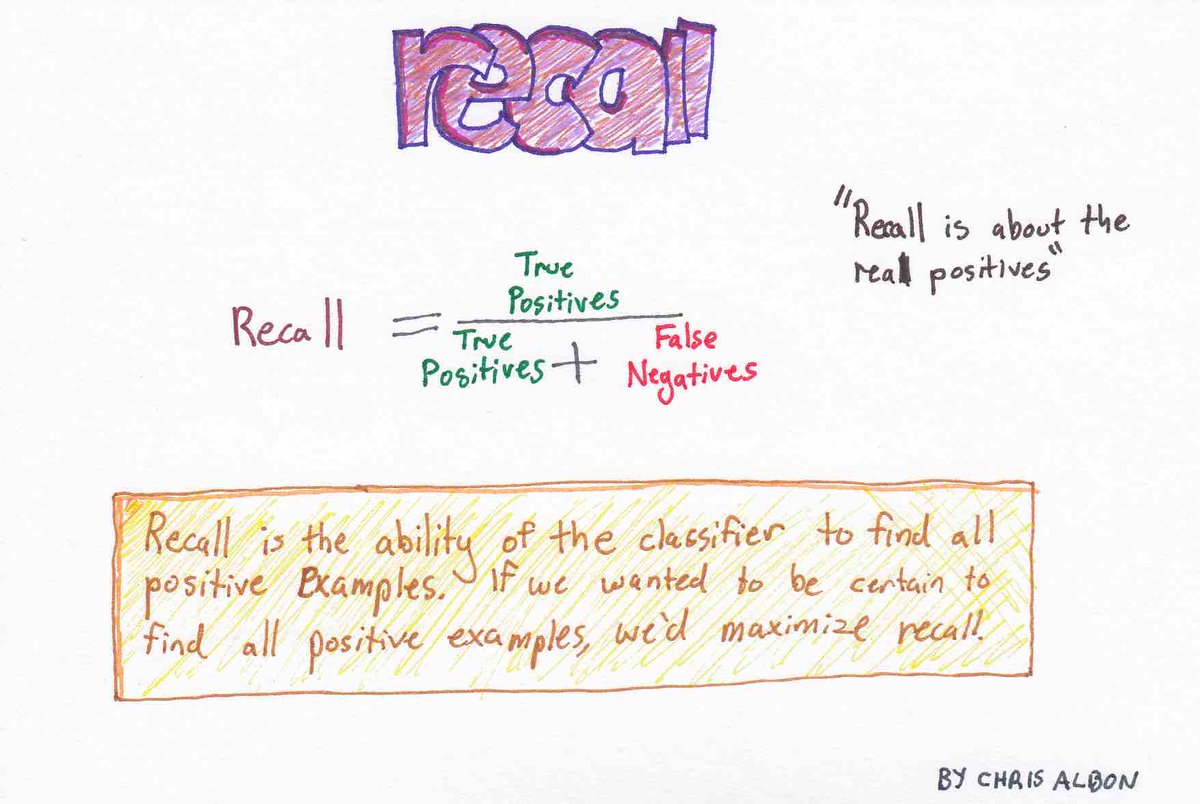 recall
"Recall is about the
real positives"
True
Positives
Recall =
True
Positives + False
Negatives
Recall is the ability of the classifier to find all
positive Examples. If we wanted to be certain to
find all positive examples, we'd maximize recall.
BY CHRIS ALBON